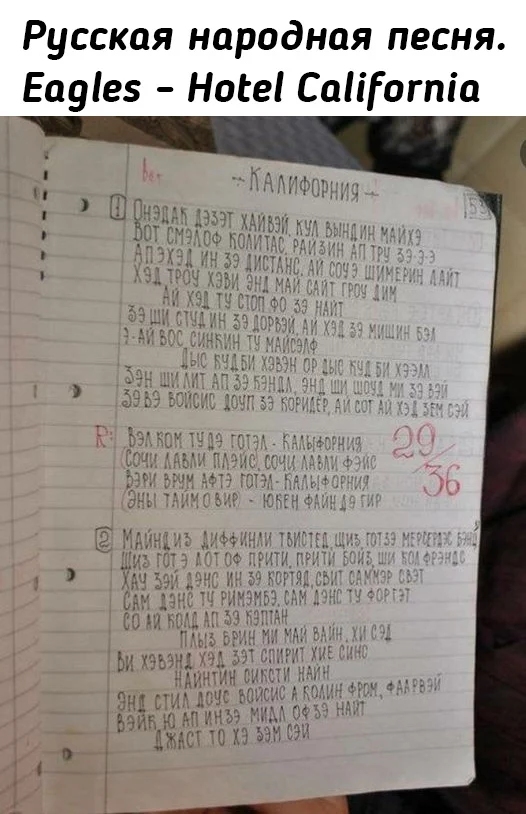 Русская народная песня.
Eagles - Hotel California
- КАЛИФОРНИЯ -
53
1 ОНЭДАК ДЭЗЭТ ХАЙВЭЙ, КУЛ ВЫНДИН МАЙХЭ
ВОТ СМЭЛОФ КОЛИТАС, РАЙЗИН АП ТРУ ЗЭ-Э-Э
АПЭХЭД ИН ЗЭ ДИСТАНС, АЙ СОУЭ ШИМЕРИН ЛАЙТ
ХЭД ТРОУ ХЭВИ ЭНД МАЙ САЙТ ГРОУ ДИМ
АЙ ХЭД ТУ СТОП ФО ЗЭ НАЙТ
ЗЭ ШИ СТУД ИН ЗЭ ДОРВЭЙ, АЙ ХЭД ЗЭ МИШИН БЭЛ
Э-АЙ ВОС СИНКИН ТУ МАЙСЭЛФ
ДЫС КУД БИ ХЭВЭН ОР ДЫС КУД БИ ХЭЭЛЛ
ЗЭН ШИ ЛИТ АП ЗЭ КЭНДЛ, ЭНД ШИ ШОУД МИ ЗЭ ВЭЙ
ЗЭВЭ ВОЙСИС ДОУП ЗЭ КОРИДЕР, АЙ СОТ АЙ ХЭД ЗЕМ СЭЙ
R: ВЭЛКОМ ТУ ДЭ ГОТЭЛ - КАЛЫФОРНИЯ
(СОЧИ ЛАВЛИ ПЛЭЙС, СОЧИ ЛАВЛИ ФЭЙС
ВЭРИ ВРУМ АФТЭ ГОТЭЛ - КАЛЫФОРНИЯ
(ЭНЫ ТАЙМ О ВИР) - ЮКЕН ФАЙНД ЭГИР
29/36
2 МАЙНД ИЗ ДИФФИНЛИ ТВИСТЕД, ШИЗ ГОТ ЗЭ МЕРСЕРДЭС БЭНДЗ
ШИЗ ГОТ Э ЛОТ ОФ ПРИТИ, ПРИТИ БОЙЗ, ШИ КОЛ ФРЭНДС
ХАУ ЗЭЙ ДЭНС ИН ЗЭ КОРТЯД, СВИТ САММЭР СВЭТ
САМ ДЭНС ТУ РИМЭМБЭ, САМ ДЭНС ТУ ФОРГЭТ
СО АЙ КОЛД АП ЗЭ КЭПТАН
ПЛЫЗ БРИН МИ МАЙ ВАЙН, ХИ СЭД
ВИ ХЭВЭНД ХЭД ЗЭТ СПИРИТ ХИЕ СИНС
НАЙНТИН СИКСТИ НАЙН
ЭНД СТИЛ ДОУС ВОЙСИС А КОЛИН ФРОМ, ФААРВЭЙ
ВЭЙК Ю АП ИН ЗЭ МИДЛ ОФ ЗЭ НАЙТ
ДЖАСТ ТО ХЭ ЗЭМ СЭЙ